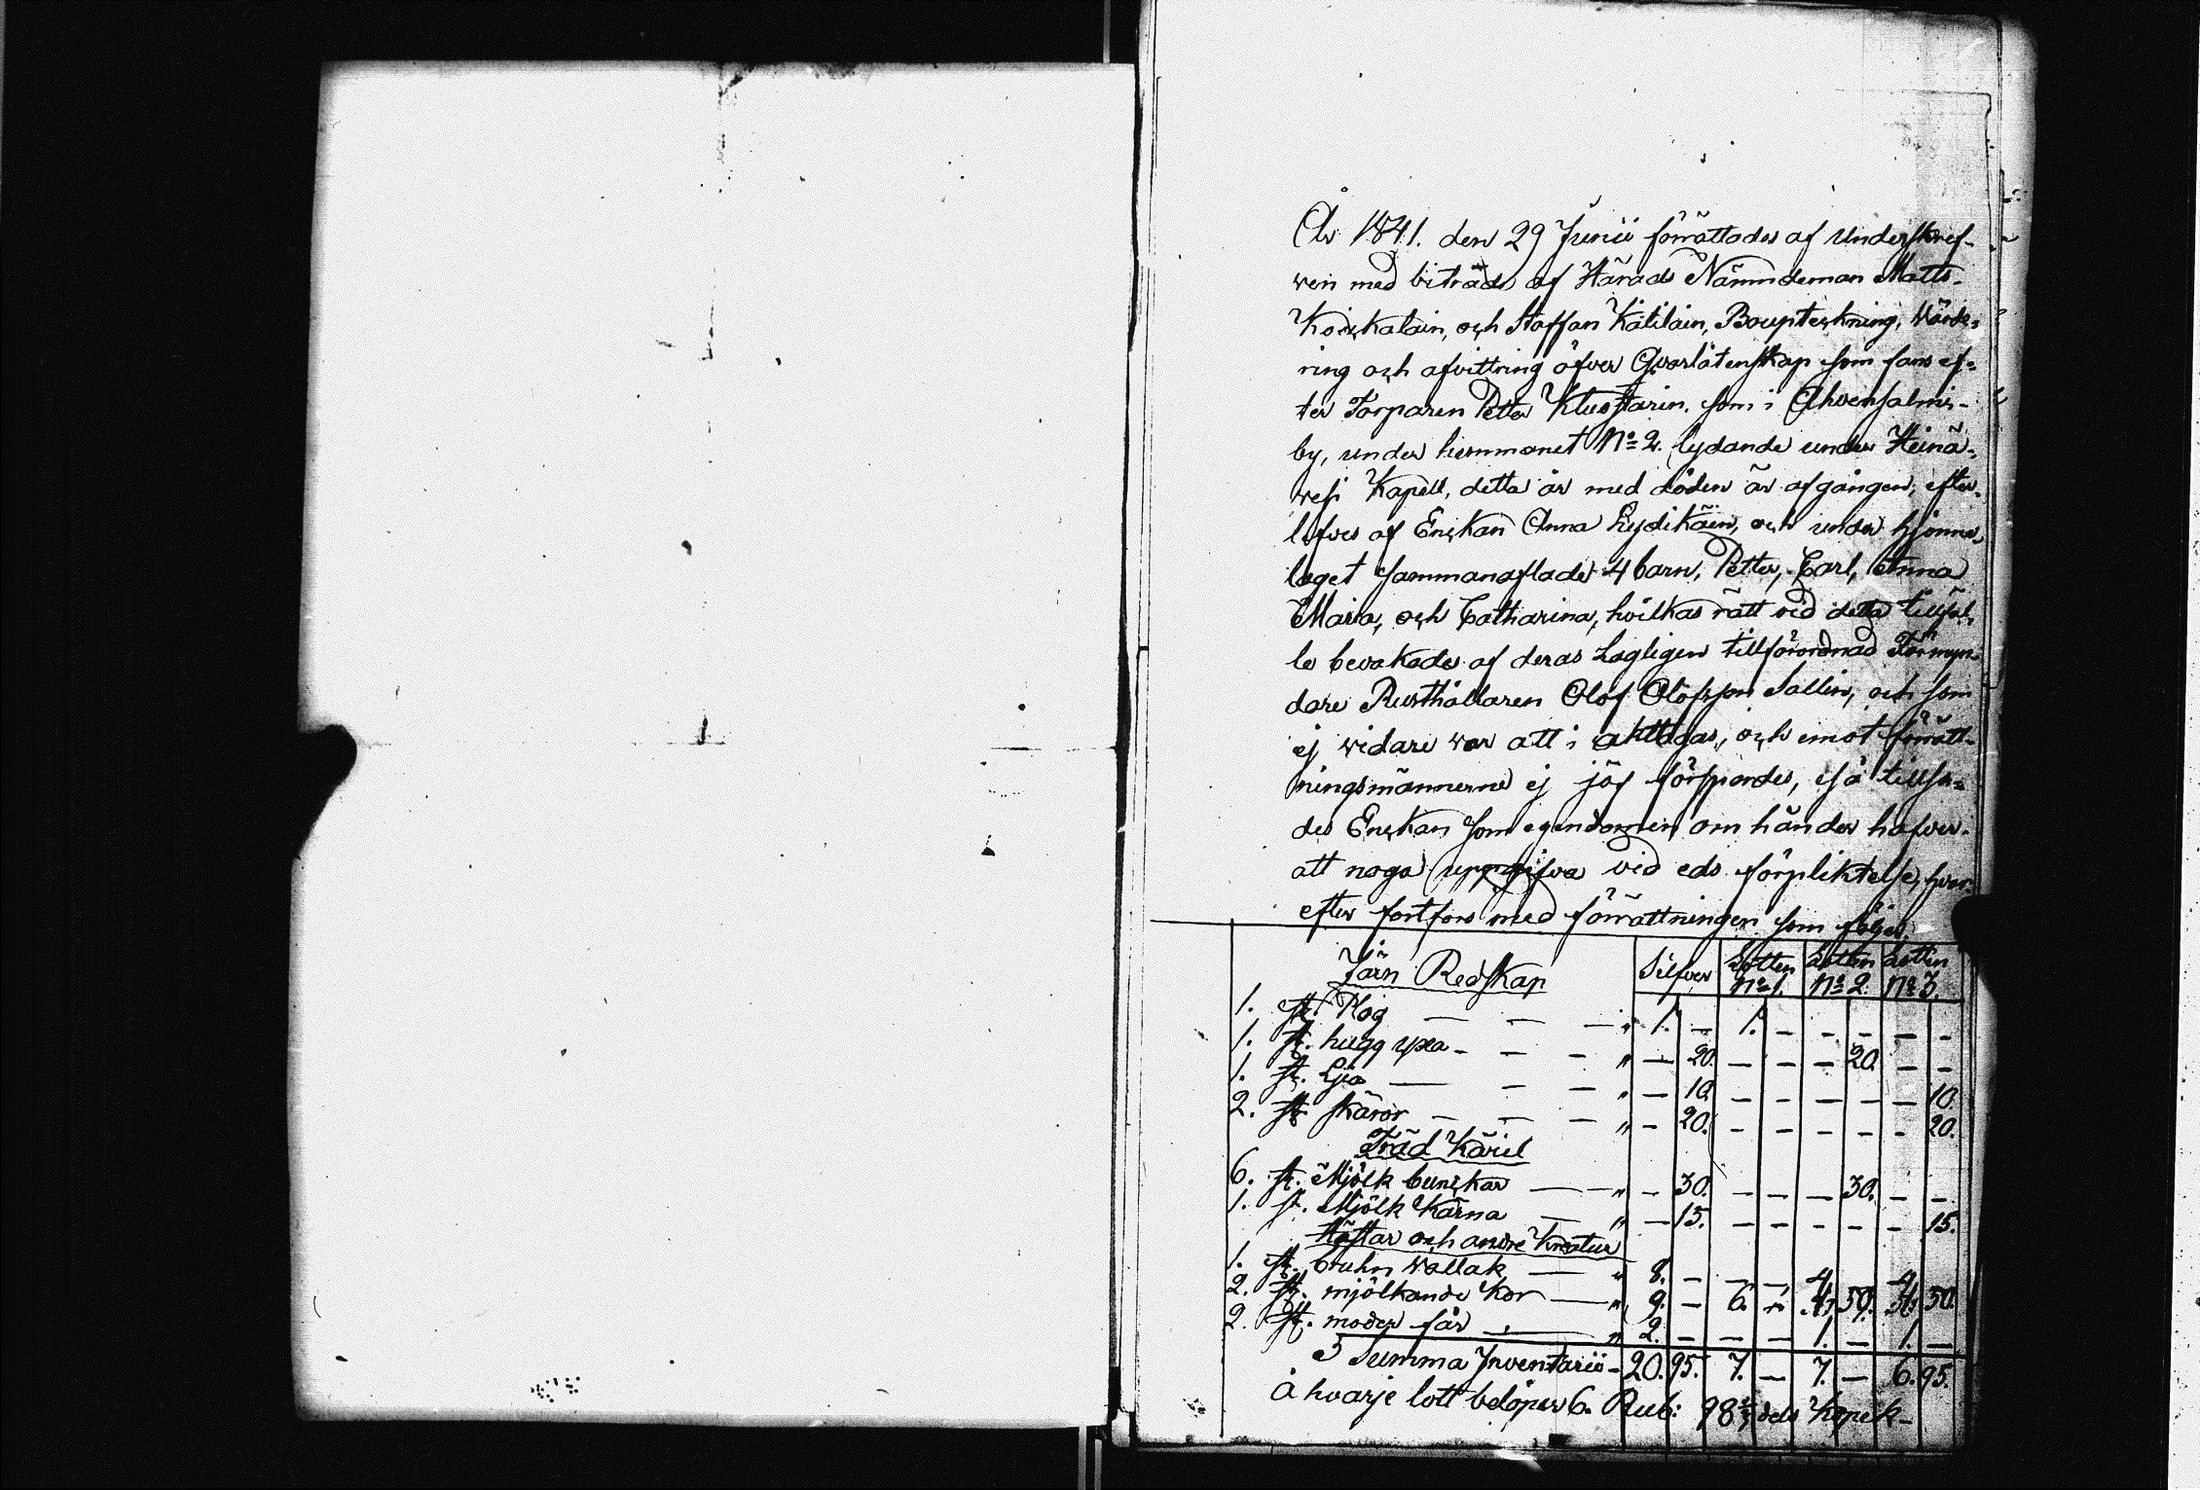 År 1841. den 29 Junii förrättades af Underskref-
ven med biträde af Härads Nämndeman Matts
Koickalain, och Staffan Kälilain, Boupteckning, Värde-
ring och afvittring öfver Qvarlåtenskap som fans ef-
ter Torparen Petter Klustarin som i Ahvensalmi-
by, under hemmanet N:o 2. lydande under Heinä-
vesi Kapell, detta år med döden är afgången, efter-
lefves af Enckan Anna Lydikäin, och under hjonne-
laget sammanaflade 4 barn, Petter, Carl, Anna
Maria, och Catharina, hvilkas rätt vid detta tillfäl-
le bevakades af deras Lagligen tillförordnad Förmyn-
dare Rusthållaren Olof Olofsson Sallin, och som
ej vidare var att i akttagas, och emot förrätt-
ningsmännerne ej jäf förspordes, så tillsa-
des Enckan som egendomen om händer hafver
att noga uppgifva vid eds förpliktelse, hvar-
efter fortfors med förrättningen som följer.
Järn Redskap Silfver Lotten N:o 1. Lotten N:o 2. Lotten N:o 3.
1. st. Plog — — — " 1. — 1. — — — — —
1. st. hugg yxa — — — " — 20. — — — 20. — —
1. st. Lja — — — " — 10. — — — — — 10.
2. st. skäror — — — " — 20. — — — — — 20.
Träd Käril
6. st. Mjölk bunckar — — " — 30. — — — 30. — —
1. st. Mjölk Kärna — " — 15. — — — — — 15.
Hästar och andre Kreatur
1. st. bruhn Vallak — " 8. — — — 4. 4.
2. st. mjölkande Kor — " 9. — 6. 50. 50.
2. st. moder får — " 2. — — — 1. — 1. —
Summa Inventarii — 20. 95. 7. — 7. — 6. 95.
å hvarje lott belöper 6. Rub: 98 dels kopek